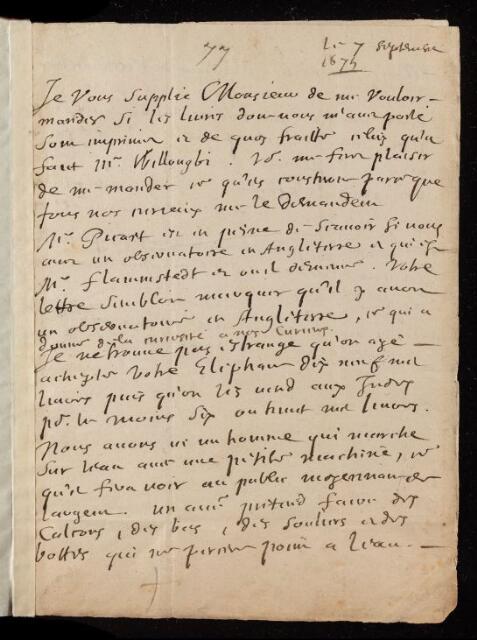 77
Le 7 septembre
1675
Je Vous Supplie Monsieur de me Vouloir
mander si les livres dont vous m'avez parlé
sont imprimez et de quoy traitte celuy qu'a
fait Mr. Willougbi. Vs. me fera plaisir
de me mander ce qu'ils coustent parce que
tous nos curieux me le demandent
Mr. Picart est en peine de sçavoir si vous
avez un observatoire en Angleterre et qui est
Mr. Flammstedt et ou il demeure. Votre
lettre sembloit marquer qu'il y avoit
un observatoire en Angleterre, ce qui a
donné de la curiosité a nos Curieux.
Je ne trouve pas estrange qu'on aye
achepté votre Elephant dix neuf mil
livres puis qu'on les vend aux Indes
pr. le moins six ou huit mil livres.
Nous avons vu un homme qui marche
sur l'eau avec une petite machine, ce
qu'il fera voir au public moyennant de
l'argent. un autre pretend faire des
Calçons, des bas, des souliers et des
bottes qui ne percent point a l'eau.